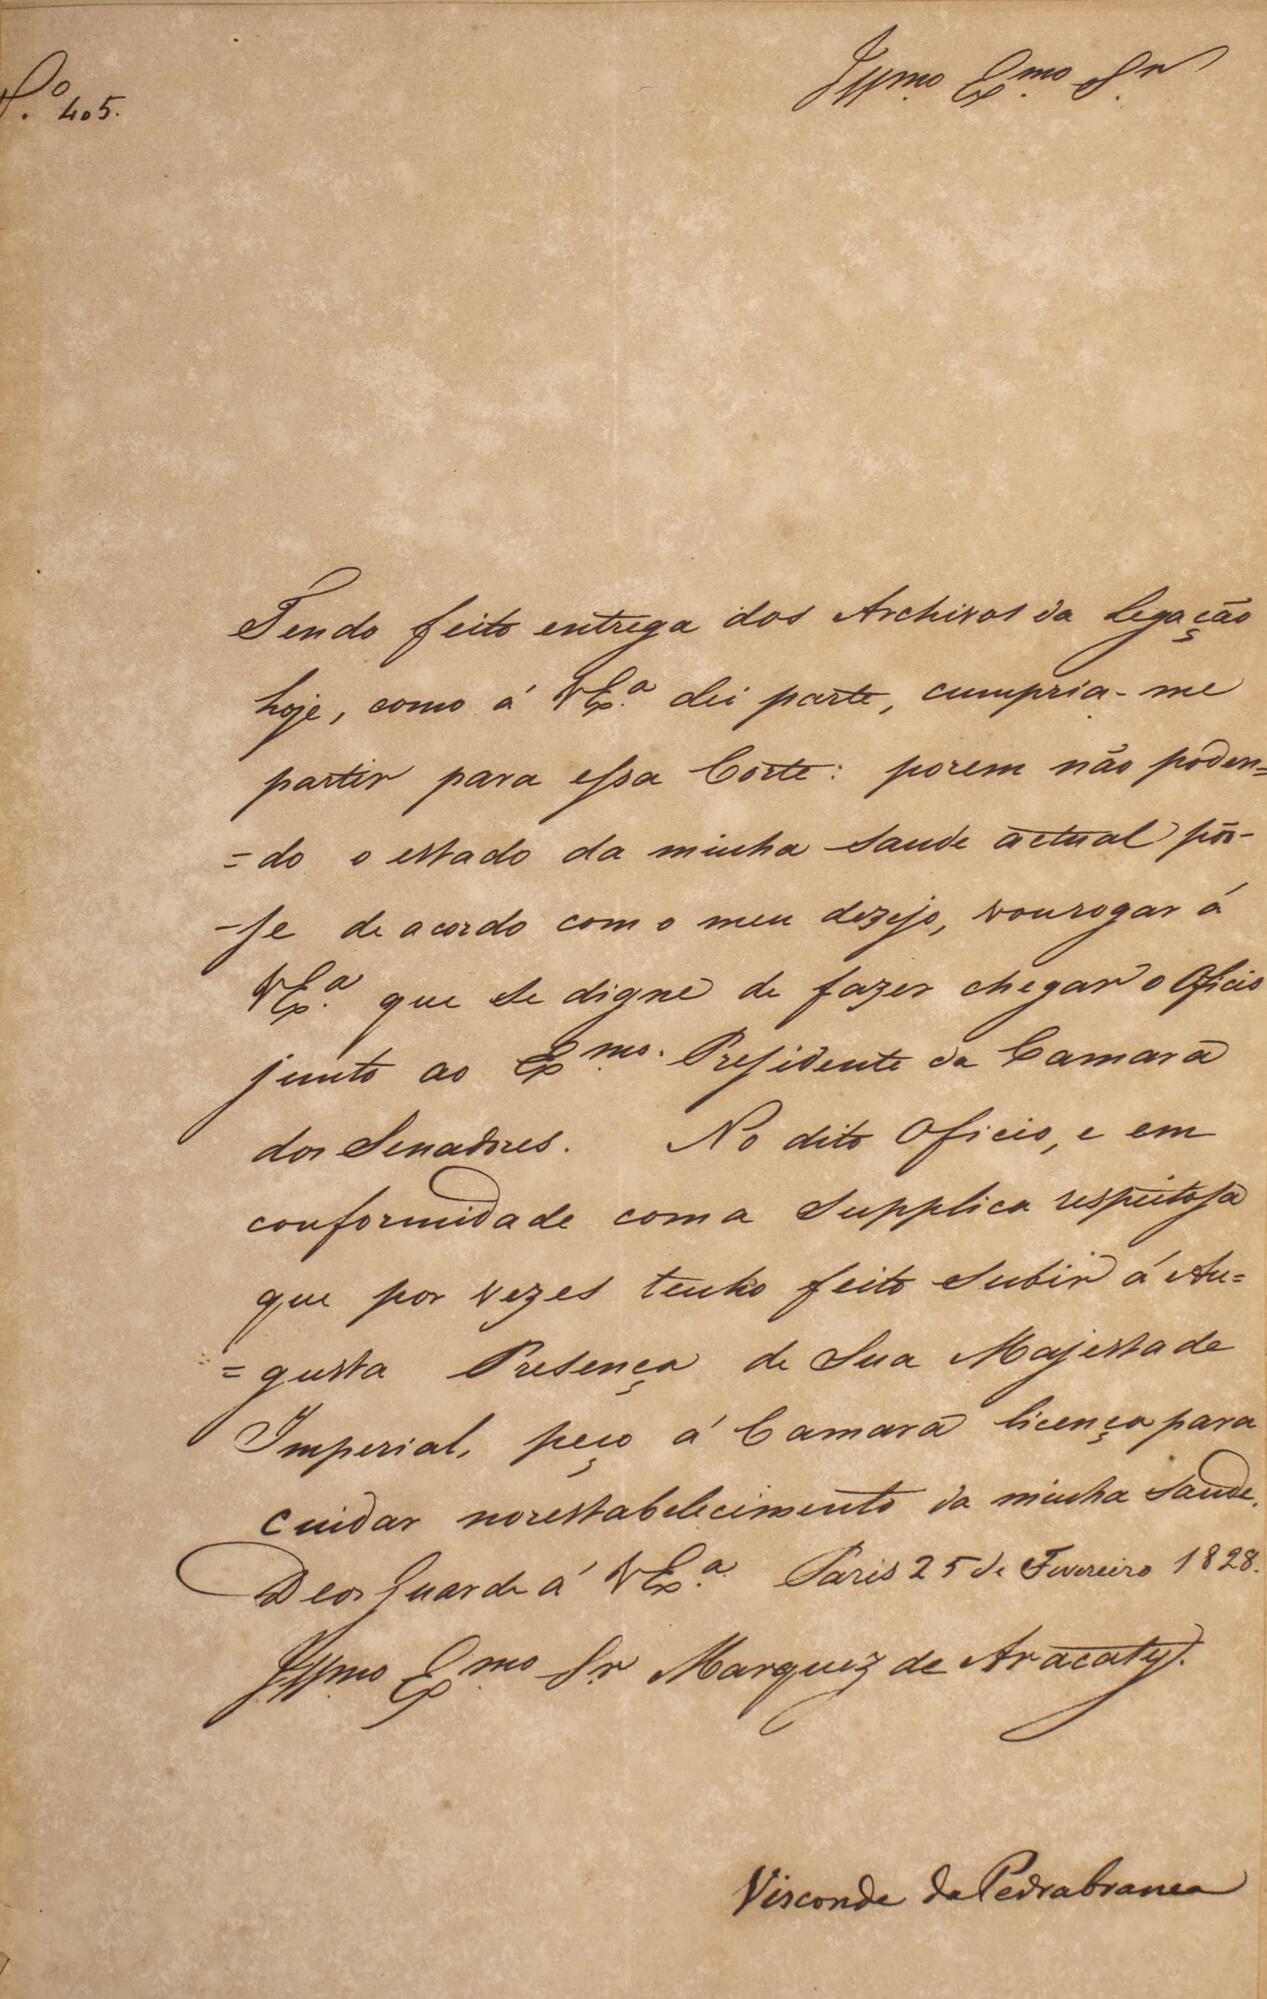 N.º 405.
Illmo. Exmo. Sr.
Tendo feito entrega dos Archivos da Legação
hoje, como á V Ex.ª dei parte, cumpria-me
partir para essa Corte: porem não poden=
=do o estado da minha saude actual pôr-
-se de acordo com o meu dezejo, vou rogar á
V Ex.ª que se digne de fazer chegar o Oficio
junto ao Exmo. Presidente da Camara
dos Senadores. No dito Oficio, e em
conformidade com a supplica respeitosa
que por vezes tenho feito subir á Au=
=gusta Presença de Sua Majestade
Imperial, peço á Camara licença para
cuidar no restabelecimento da minha saude.
Deos Guarde á V Ex.ª Paris 25 de Fevereiro 1828.
Illmo Exmo Sr Marquez de Aracaty.
Visconde da Pedrabranca